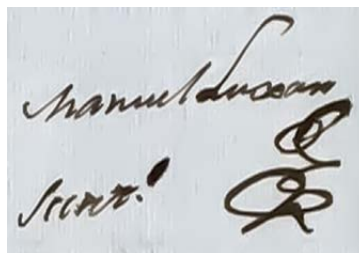 Manuel Luxan
Secret.º